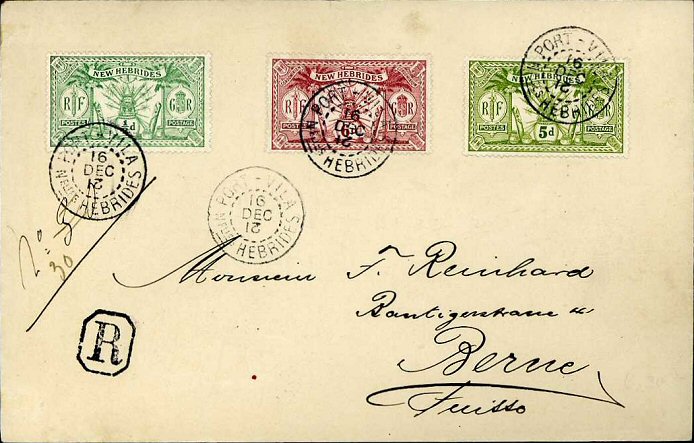 NEW HEBRIDES
R F
G R
½d
POSTES POSTAGE
NEW HEBRIDES
R F
G R
POSTES POSTAGE
NEW HEBRIDES
R F
G R
5d
POSTES POSTAGE
PORT-VILA
16
DEC
12
NEW HEBRIDES
PORT-VILA
16
DEC
12
NEW HEBRIDES
PORT-VILA
16
DEC
12
NEW HEBRIDES
PORT-VILA
16
DEC
12
NEW HEBRIDES
30
R
Monsieur F. Reinhard
Bantigerstrasse
Berne
Suisse